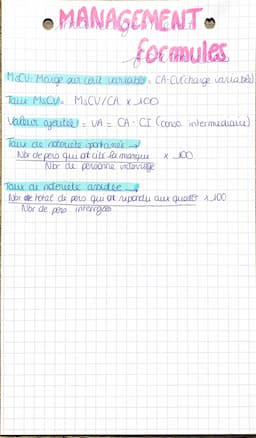 MANAGEMENT
formules
MsCV: Marge sur coût variable = CA-CV(charge variables)
Taux MsCV= MsCV/CA x 100
Valeur ajoutée = VA = CA - CI (conso intermediaire)
Taux de notoriété spontanée →
Nbr de pers qui ont cité la marque x 100
Nbr de personne interrogé
Taux de notoriété assistée
Nbr de total de pers qui ont repondu aux x 100
Nbr de pers interrogés